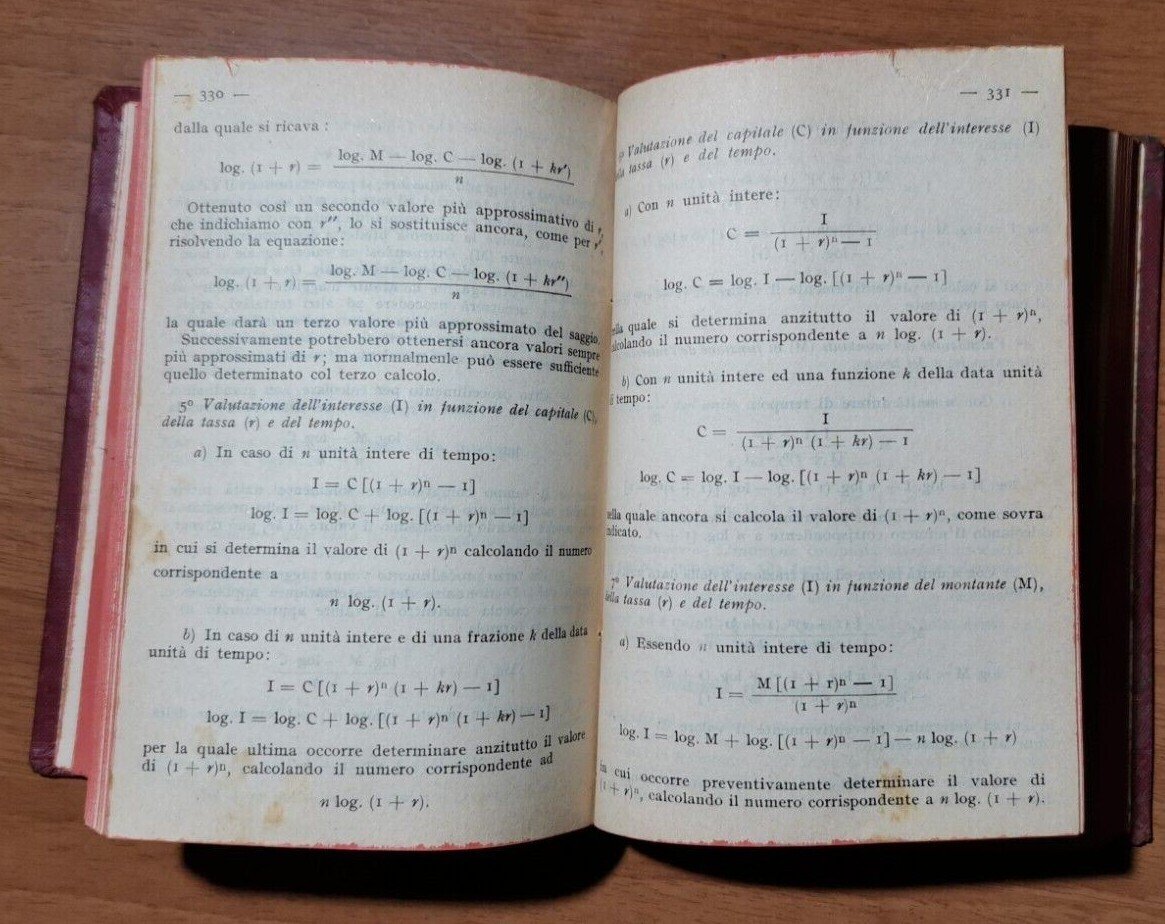 — 330 —
dalla quale si ricava :
log. (1 + r) = log. M — log. C — log. (1 + kr′)
n
Ottenuto così un secondo valore più approssimativo di r,
che indichiamo con r″, lo si sostituisce ancora, come per r′,
risolvendo la equazione:
log. (1 + r) = log. M — log. C — log. (1 + kr″)
n
la quale darà un terzo valore più approssimato del saggio.
Successivamente potrebbero ottenersi ancora valori sempre
più approssimati di r; ma normalmenle può essere sufficiente
quello determinato col terzo calcolo.
5º Valutazione dell'interesse (I) in funzione del capitale (C),
della tassa (r) e del tempo.
a) In caso di n unità intere di tempo:
I = C [(1 + r)ⁿ — 1]
log. I = log. C + log. [(1 + r)ⁿ — 1]
in cui si determina il valore di (1 + r)ⁿ calcolando il numero
corrispondente a
n log. (1 + r).
b) In caso di n unità intere e di una frazione k della data
unità di tempo:
I = C [(1 + r)ⁿ (1 + kr) — 1]
log. I = log. C + log. [(1 + r)ⁿ (1 + kr) — 1]
per la quale ultima occorre determinare anzitutto il valore
di (1 + r)ⁿ, calcolando il numero corrispondente ad
n log. (1 + r).
— 331 —
Valutazione del capitale (C) in funzione dell'interesse (I)
tassa (r) e del tempo.
a) Con n unità intere:
C = I
(1 + r)ⁿ — 1
log. C = log. I — log. [(1 + r)ⁿ — 1]
quale si determina anzitutto il valore di (1 + r)ⁿ,
calcolando il numero corrispondente a n log. (1 + r).
b) Con n unità intere ed una funzione k della data unità
di tempo:
C = I
(1 + r)ⁿ (1 + kr) — 1
log. C = log. I — log. [(1 + r)ⁿ (1 + kr) — 1]
nella quale ancora si calcola il valore di (1 + r)ⁿ, come sovra
indicato.
7º Valutazione dell'interesse (I) in funzione del montante (M),
della tassa (r) e del tempo.
a) Essendo n unità intere di tempo:
I = M [(1 + r)ⁿ — 1]
(1 + r)ⁿ
log. I = log. M + log. [(1 + r)ⁿ — 1] — n log. (1 + r)
in cui occorre preventivamente determinare il valore di
(1 + r)ⁿ, calcolando il numero corrispondente a n log. (1 + r).